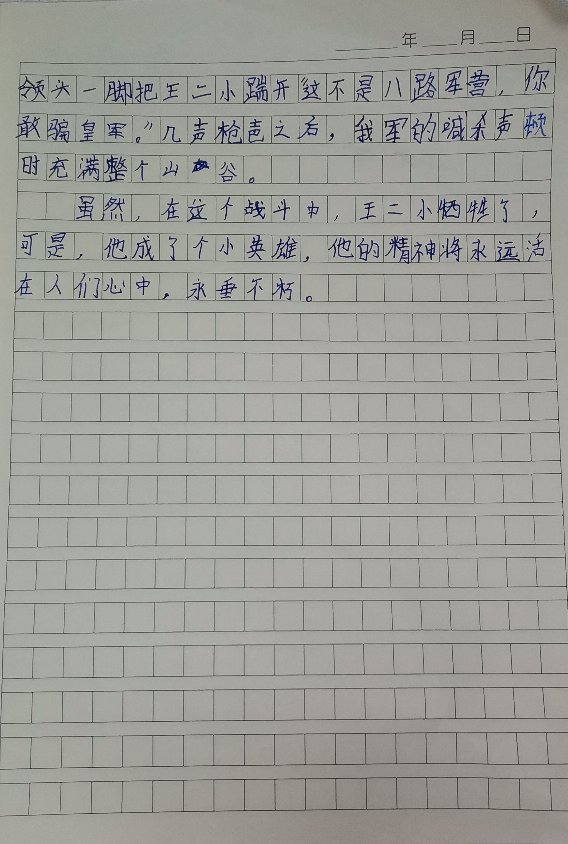 年 月 日
领头一脚把王二小踹开这不是八路军营，你
敢骗皇军。”几声枪声之后，我军的喊杀声顿
时充满整个山谷。
虽然，在这个战斗中，王二小牺牲了，
可是，他成了个小英雄，他的精神将永远活
在人们心中，永垂不朽。